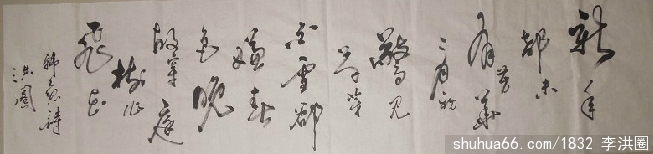 新年
都未
有芳華
二月初
驚見
草芽
白雪卻
嫌春
色晚
故穿庭
樹作
飛花
韩愈詩
洪圈
shuhua66.com/1832 李洪圈